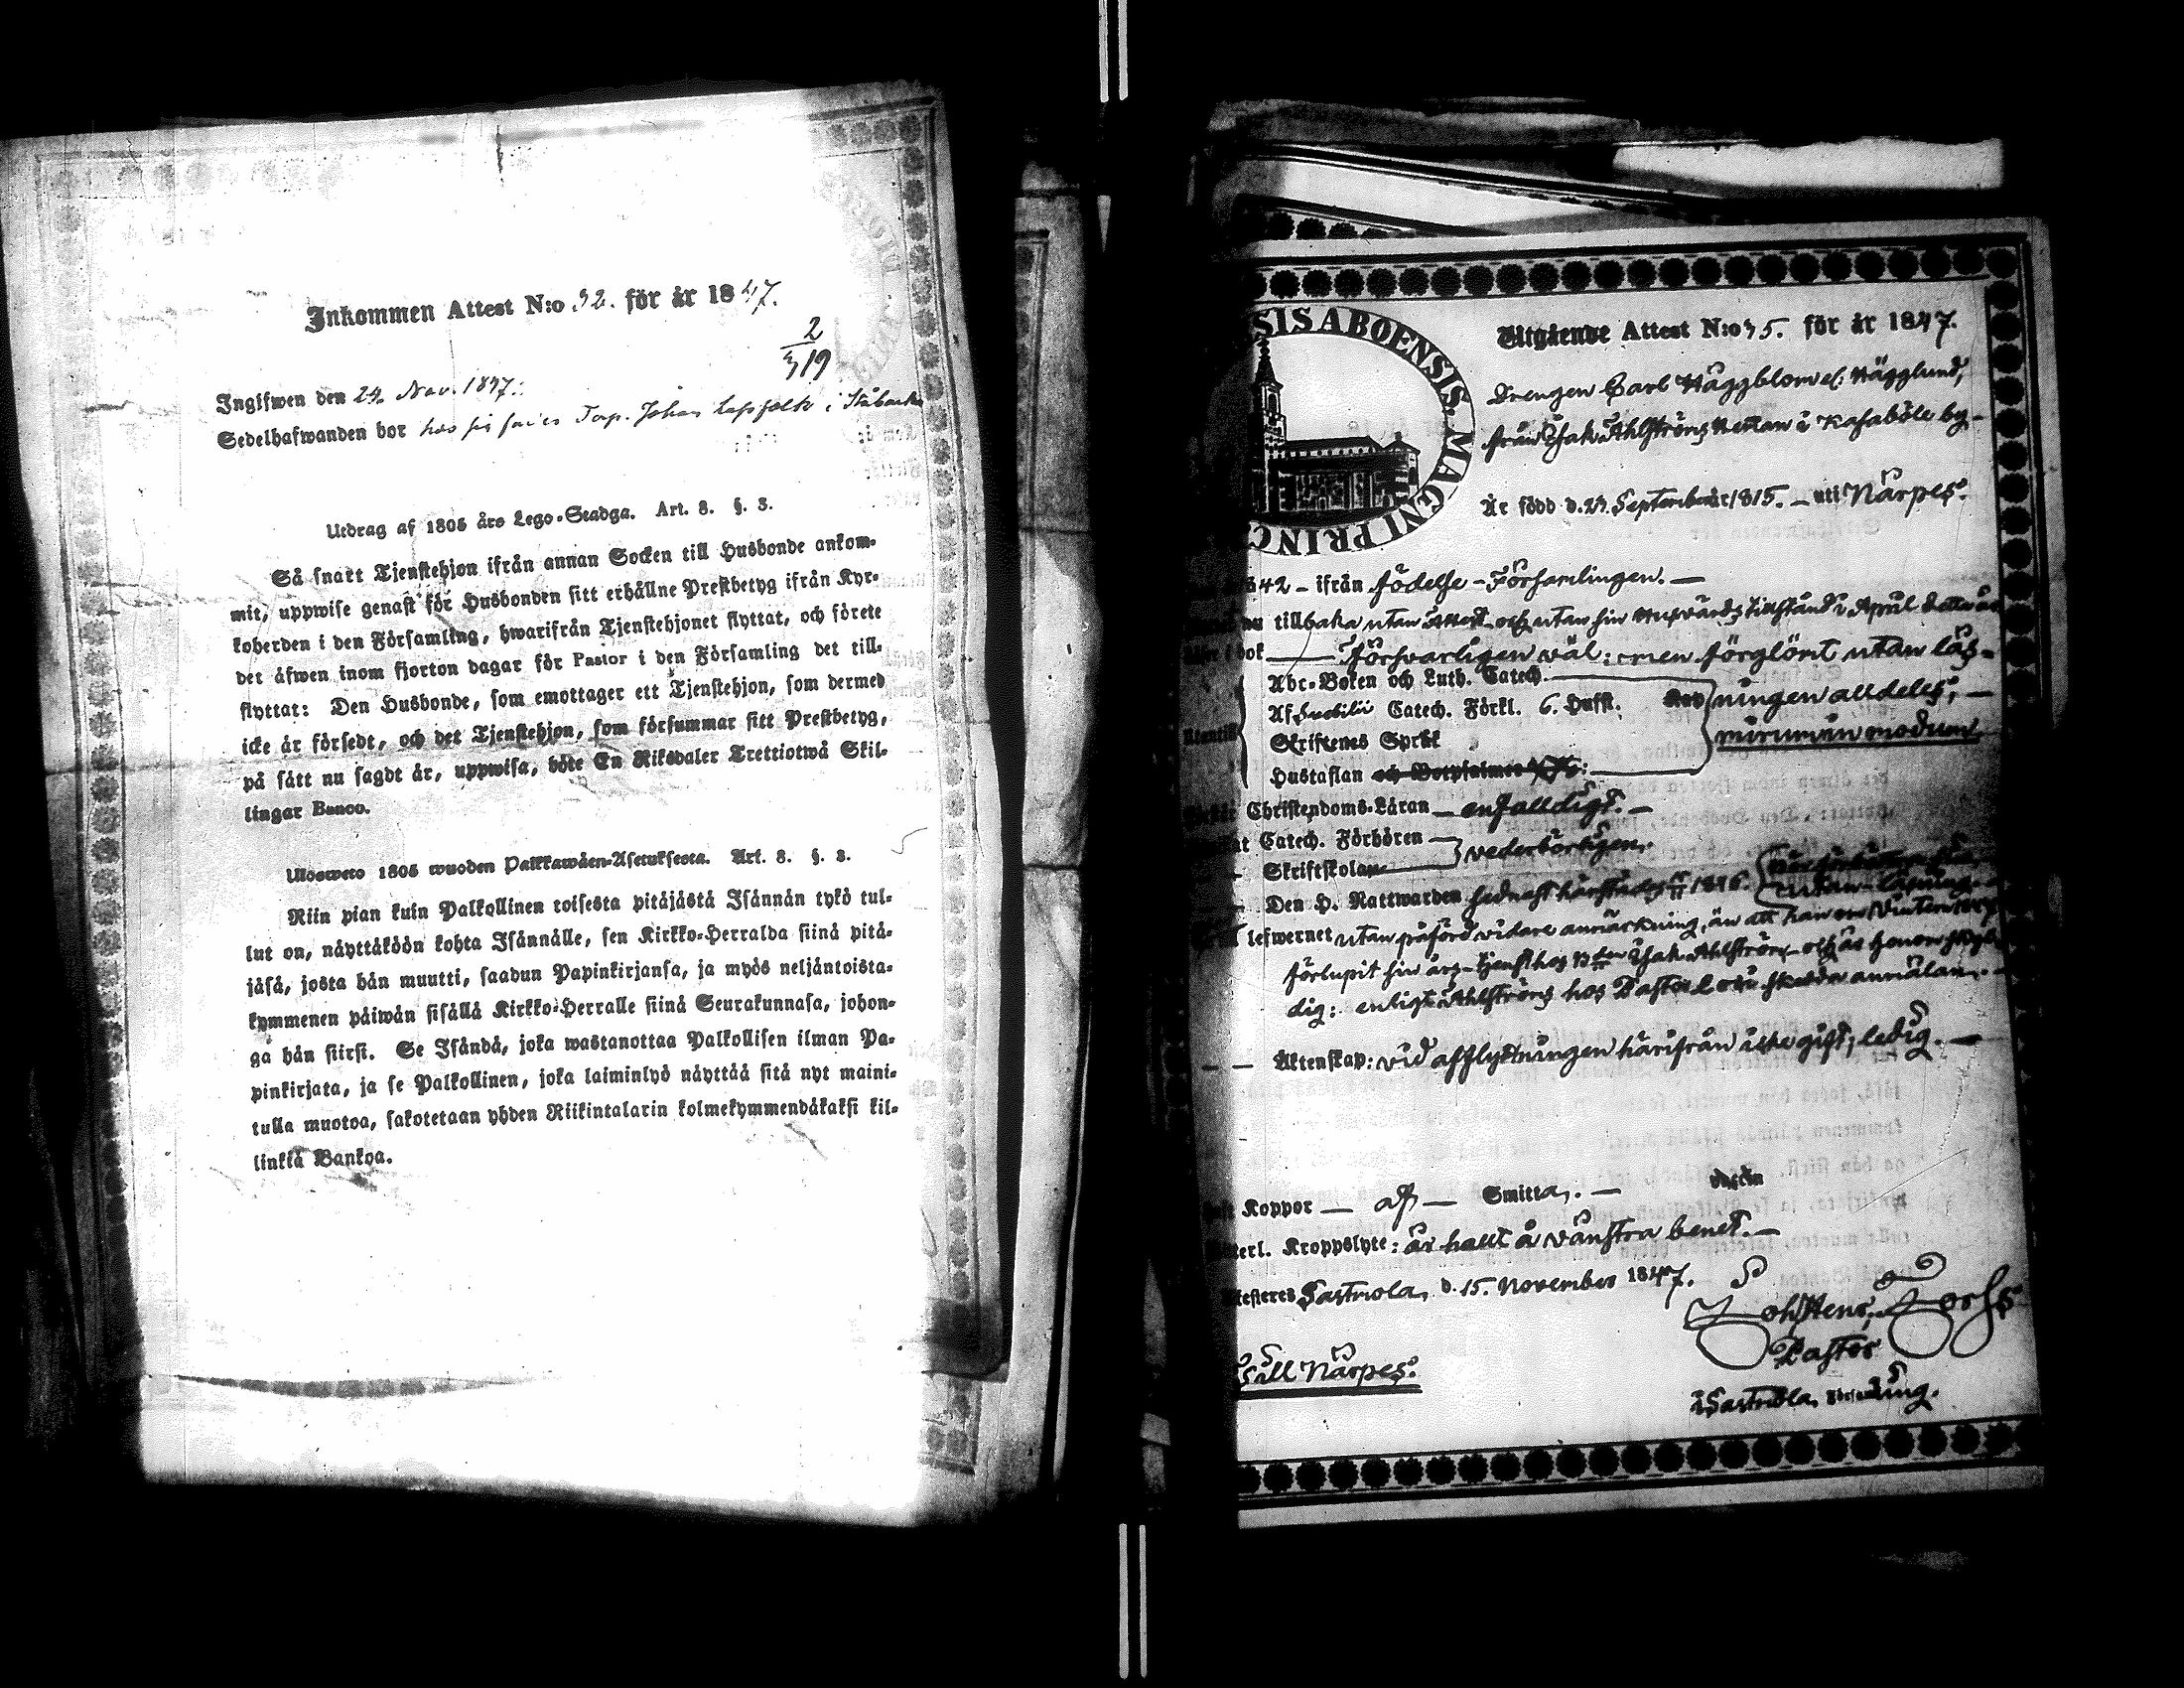 Inkommen Attest N:o 32. för år 1847.
2
319
Ingifwen den 24. Nov. 1847.
Sedelhafwanden bor hos sin Torp. Johan i
Utdrag af 1805 års Lego-Stadga. Art. 8. §. 3.
Så snart Tjenstehjon ifrån annan Socken till Husbonde ankom-
mit, uppwise genast för Husbonden sitt erhållne Prestbetyg ifrån Kyr-
koherden i den Församling, hwarifrån Tjenstehjonet flyttat, och förete
det äfwen inom fjorton dagar för Pastor i den Församling det till-
flyttat: Den Husbonde, som emottager ett Tjenstehjon, som dermed
icke är försedt, och det Tjenstehjon, som försummar sitt Prestbetyg,
på sätt nu sagdt är, uppwisa, böte En Riksdaler Trettiotwå Skil-
lingar Banco.
Ulosweto 1805 wuoden Palkkawäen-Asetuksesta. Art. 8. §. 3.
Niin pian kuin Palkollinen toisesta pitäjästä Isännän tykö tul-
lut on, näyttäköön kohta Isännälle, sen Kirkko-Herralda siinä pitä-
jäsä, josta hän muutti, saadun Papinkirjansa, ja myös neljäntoista-
kymmenen päiwän sisällä Kirkko-Herralle siinä Seurakunnasa, johon-
ga hän siirsi. Se Isändä, joka wastanottaa Palkollisen ilman Pa-
pinkirjata, ja se Palkollinen, joka laiminlyö näyttää sitä nyt maini-
tulla muotoa, sakotetaan yhden Riikintalarin kolmekymmendäkaksi kil-
linkiä Bankoa.
SIS ABOENSIS. MAGNI PRINC
Utgående Attest N:o 35. för år 1847.
Drengen Carl Häggblom el. Hägglund,
från Isak Ahlströms Hemman i Kasaböle by-
Är född d. 23. September år 1815. – uti Närpes.
1842 – ifrån födelse-Församlingen. –
nu tillbaka utan Attest och utan sin Husvärds tillstånd i April detta år
i bok — försvarligen väl: men förglömt utan läs-
Abc-Boken och Luth. Catech. —
ningen alldeles, –
Af Svebilii Catech. Förkl. 6. Hufst.
Skriftenes Språk
mirumin modum.
Hustaflan och Botpsalmer
Christendoms-Läran – enfalldigt. –
Catech. Förhören –
vederbörligen.
Skriftskolan –
Den H. Nattwarden sednast härstädes 1846.
utan läsning.
lefwernet utan präford vidare anmärkning, än att han om Vintern 1847
förlupit sin års-tjenst hos Isak Ahlström och är
dig: enligt Ahlströms hos Pastor skedda anmälan. –
Äktenskap: vid afflyttningen härifrån icke gift, ledig. –
Koppor – af – Smitta. –
Kroppslyte: är halt å vänstra benet. –
Attesteres Sastmola d. 15. November 1847.
Pastor
i Sastmola Församling.
Till Närpes.